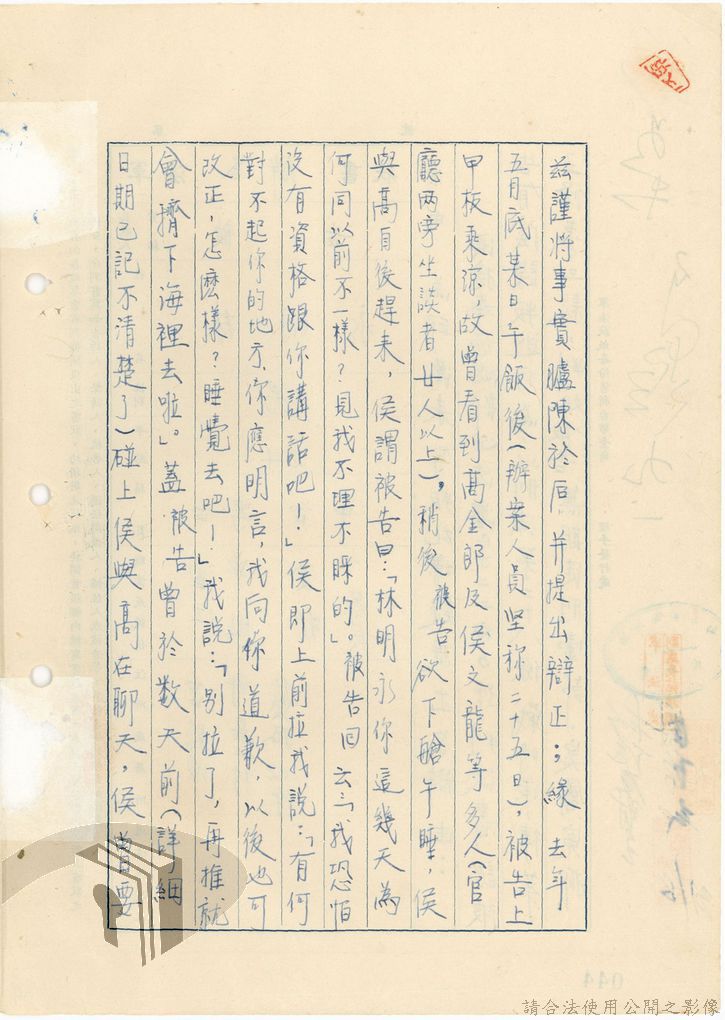 茲謹將事實臚陳於后,并提出辯正:緣去年
五月底某日午飯後(辦案人員坚称二十五日),被告上
甲板乘涼,故曾看到高金郎及侯文龍等多人(官
廳两旁坐談者廿人以上),稍後被告欲下艙午睡,侯
與高自後趕來,侯謂被告曰:「林明永你這幾天為
何同以前不一樣?見我不理不睬的」。被告回云:「我恐怕
沒有資格跟你講話吧!」侯即上前拉我說:「有何
對不起你的地方,你應明言,我向你道歉,以後也可
改正,怎麽樣?睡覺去吧!」我說:「別拉了,再推就
會擠下海裡去啦。」蓋被告曾於数天前(詳細
日期已記不清楚了)碰上侯與高在聊天,侯曾要
044
請合法使用公開之影像